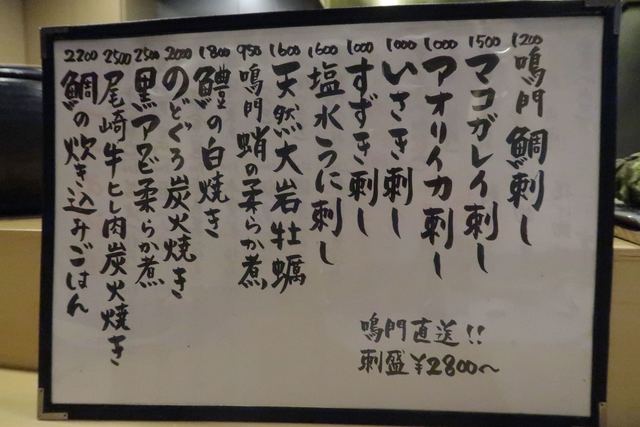 1200 鳴門 鯛刺し
1500 マコガレイ刺し
1000 アオリイカ刺し
1000 いさき刺し
1000 すずき刺し
1600 塩水うに刺し
1600 天然大岩牡蠣
950 鳴門蛸の柔らか煮
1800 鱧の白焼き
2000 のどぐろ炭火焼き
2500 黒アワビ柔らか煮
2500 尾崎牛ヒレ肉炭火焼き
2200 鯛の炊き込みごはん
鳴門直送!!
刺盛¥2800〜